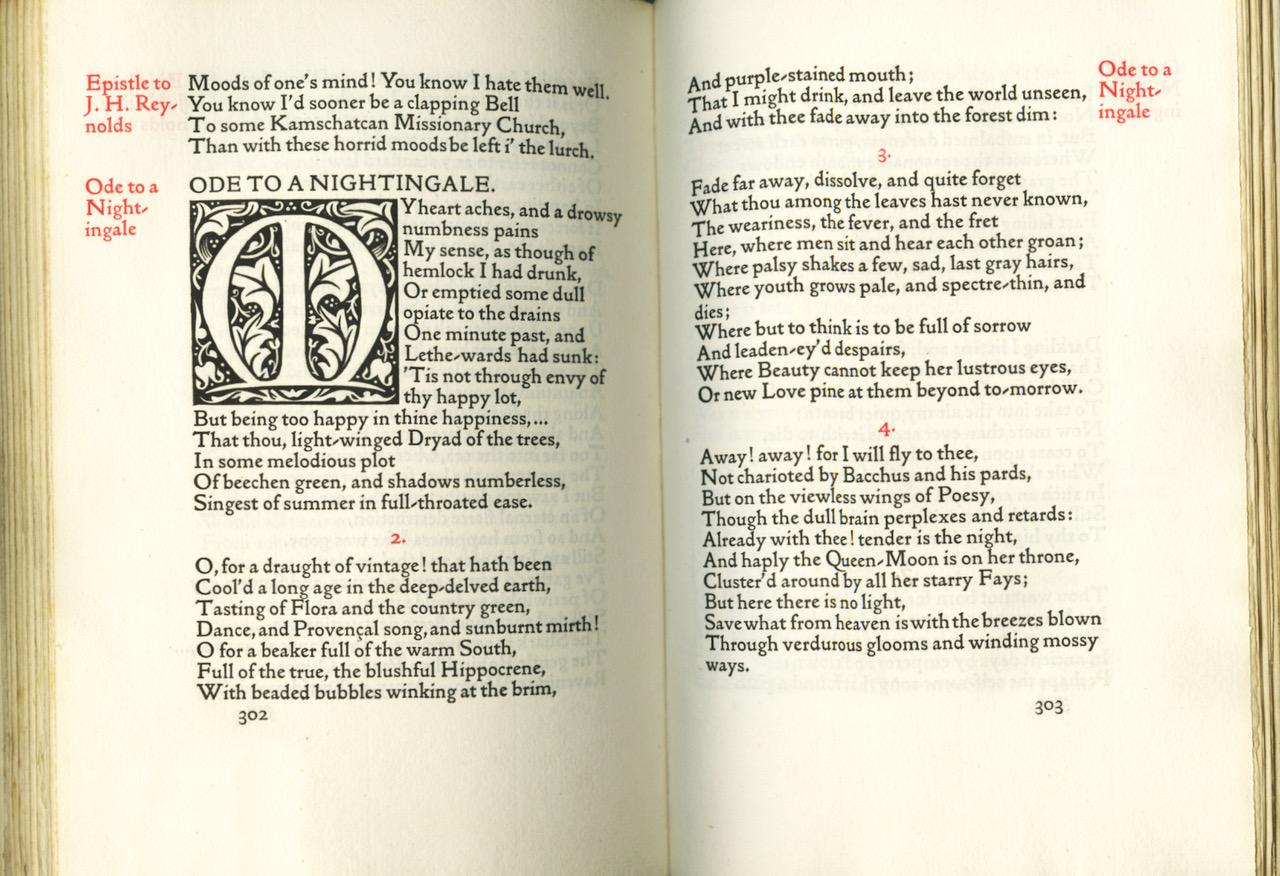 Epistle to
J. H. Rey-
nolds
Moods of one's mind! You know I hate them well.
You know I'd sooner be a clapping Bell
To some Kamschatcan Missionary Church,
Than with these horrid moods be left i' the lurch.
Ode to a
Night-
ingale
ODE TO A NIGHTINGALE.
MY heart aches, and a drowsy
numbness pains
My sense, as though of
hemlock I had drunk,
Or emptied some dull
opiate to the drains
One minute past, and
Lethe-wards had sunk:
'Tis not through envy of
thy happy lot,
But being too happy in thine happiness,...
That thou, light-winged Dryad of the trees,
In some melodious plot
Of beechen green, and shadows numberless,
Singest of summer in full-throated ease.
2.
O, for a draught of vintage! that hath been
Cool'd a long age in the deep-delved earth,
Tasting of Flora and the country green,
Dance, and Provençal song, and sunburnt mirth!
O for a beaker full of the warm South,
Full of the true, the blushful Hippocrene,
With beaded bubbles winking at the brim,
302
And purple-stained mouth;
That I might drink, and leave the world unseen,
And with thee fade away into the forest dim:
Ode to a
Night-
ingale
3.
Fade far away, dissolve, and quite forget
What thou among the leaves hast never known,
The weariness, the fever, and the fret
Here, where men sit and hear each other groan;
Where palsy shakes a few, sad, last gray hairs,
Where youth grows pale, and spectre-thin, and
dies;
Where but to think is to be full of sorrow
And leaden-ey'd despairs,
Where Beauty cannot keep her lustrous eyes,
Or new Love pine at them beyond to-morrow.
4.
Away! away! for I will fly to thee,
Not charioted by Bacchus and his pards,
But on the viewless wings of Poesy,
Though the dull brain perplexes and retards:
Already with thee! tender is the night,
And haply the Queen-Moon is on her throne,
Cluster'd around by all her starry Fays;
But here there is no light,
Save what from heaven is with the breezes blown
Through verdurous glooms and winding mossy
ways.
303